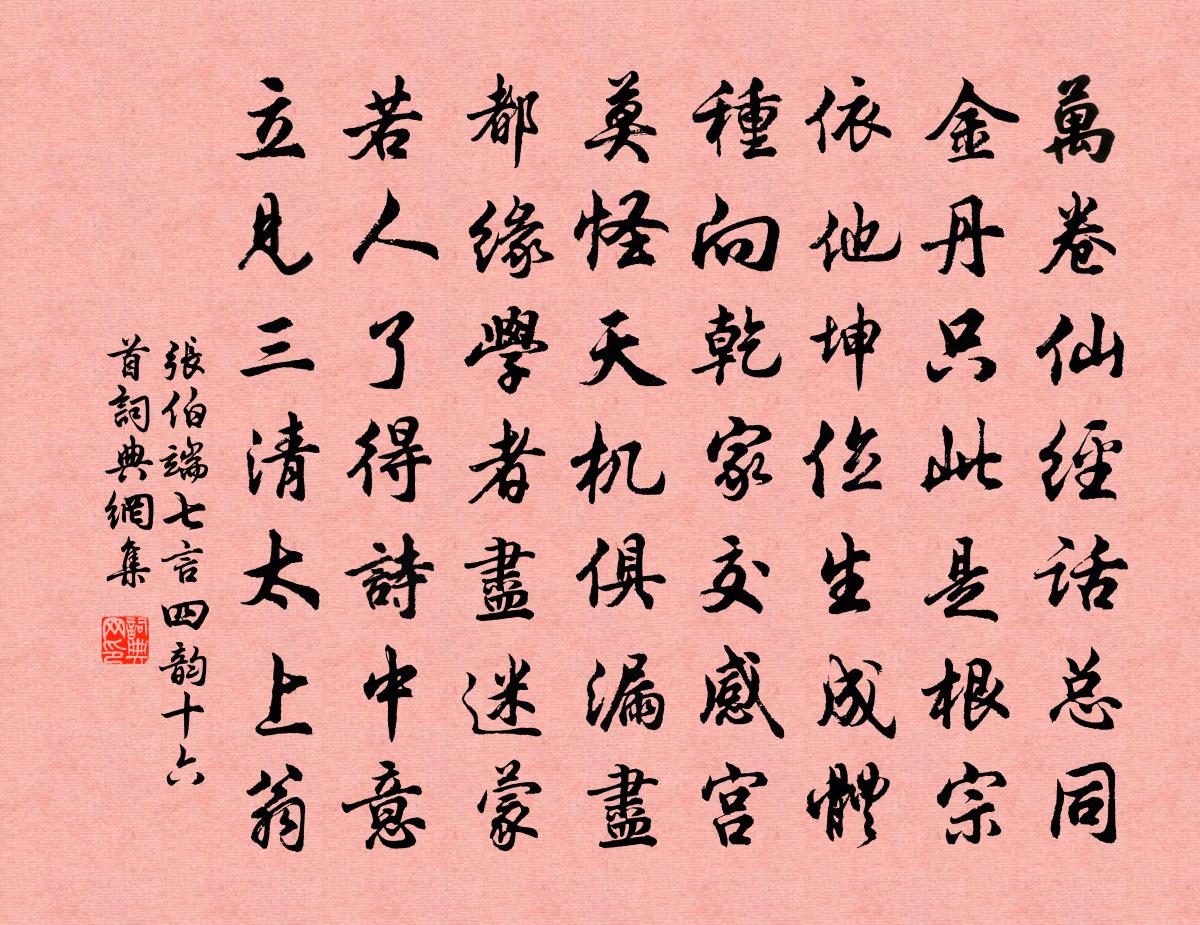 萬卷仙經話总同
金丹只此是根宗
依他坤位生成體
種向乾家交感宮
莫怪天机俱漏盡
都緣學者盡迷蒙
若人了得詩中意
立見三清太上翁
張伯端七言四韵十六
首詞典網集
詞典
网印